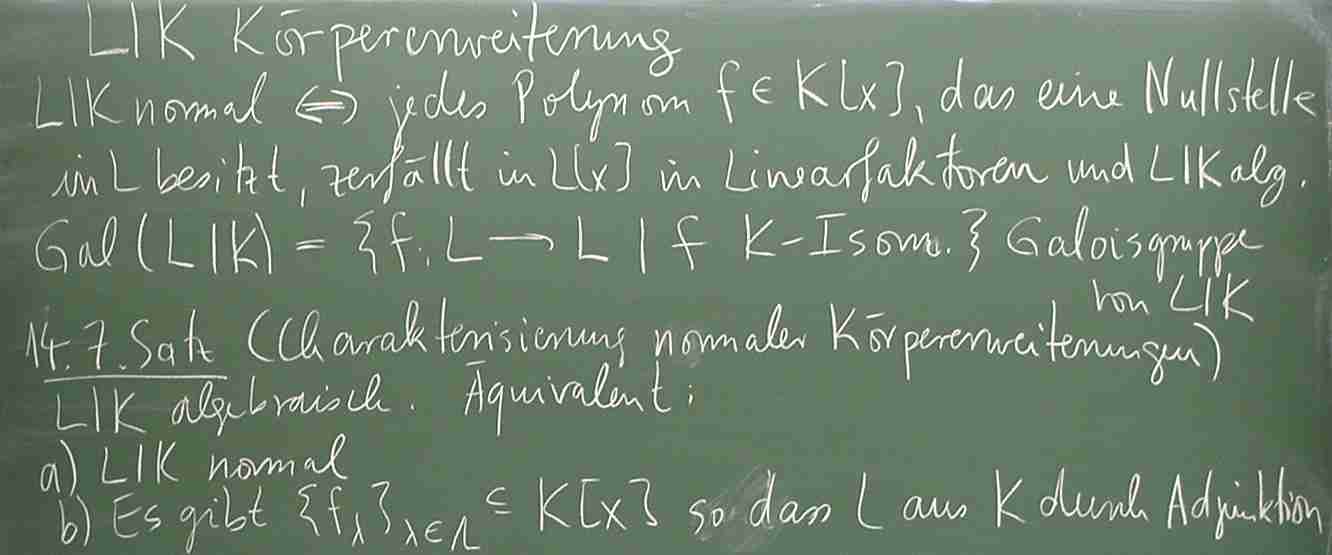 L|K Körpererweiterung
L|K normal ⇔ jedes Polynom f ∈ K[x], das eine Nullstelle
in L besitzt, zerfällt in L[x] in Linearfaktoren und L|K alg.
Gal(L|K) = {f: L → L | f K-Isom.} Galoisgruppe
von L|K
14.7. Satz (Charakterisierung normaler Körpererweiterungen)
L|K algebraisch. Äquivalent:
a) L|K normal
b) Es gibt {f_λ}_{λ∈Λ} ⊆ K[x] so dass L aus K durch Adjunktion